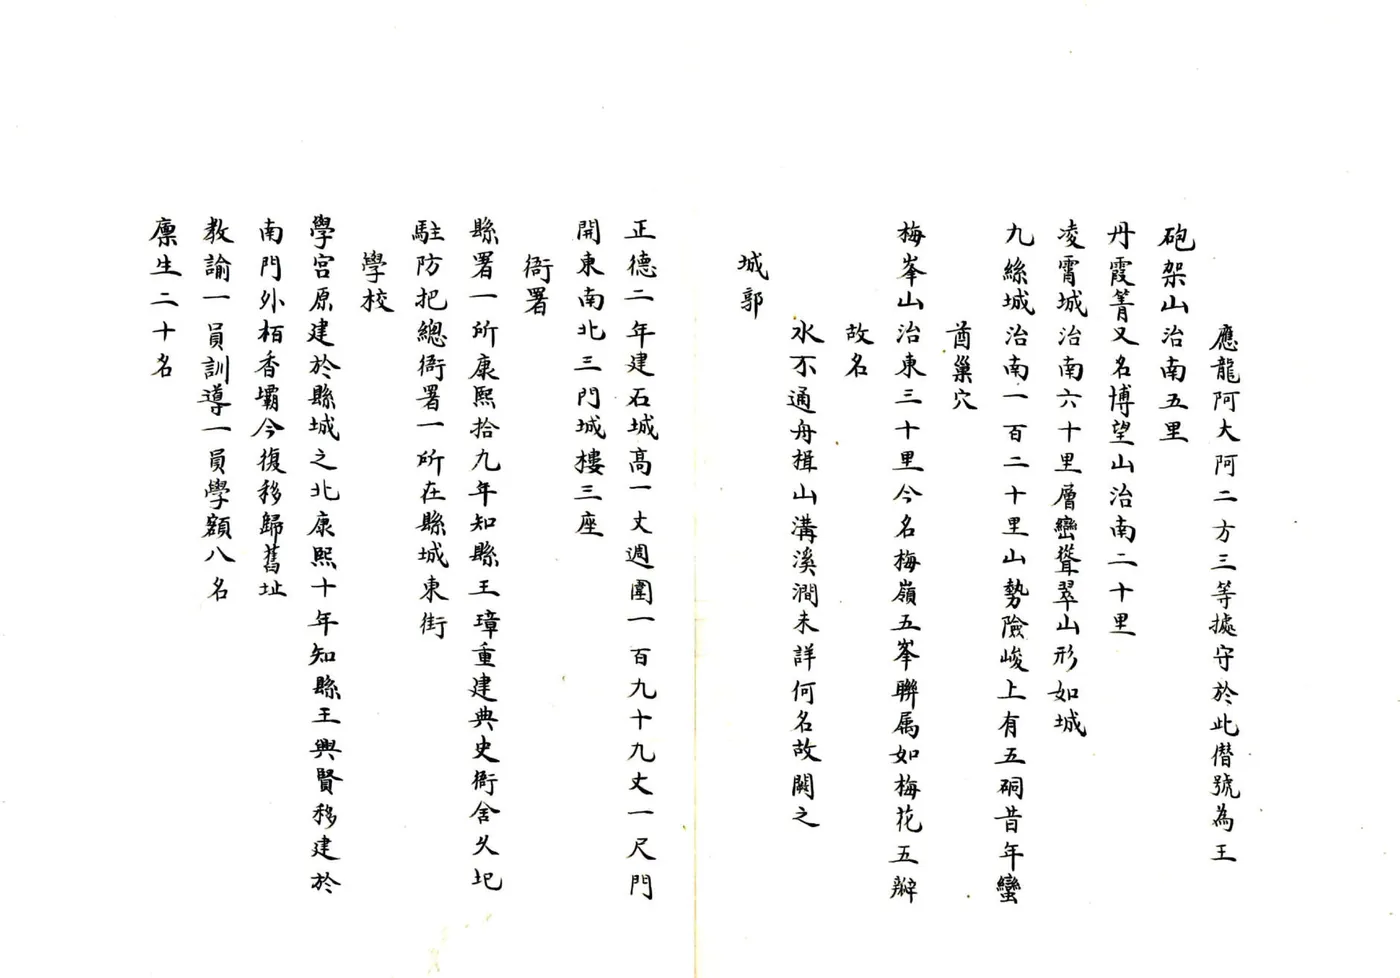 應龍阿大阿二方三等據守於此僭號為王
砲架山治南五里
丹霞箐又名博望山治南二十里
凌霄城治南六十里層巒聳翠山形如城
九絲城治南一百二十里山勢險峻上有五硐昔年蠻
酋巢穴
梅峯山治東三十里今名梅嶺五峯聯属如梅花五瓣
故名
水不通舟揖山溝溪澗未詳何名故闕之
城郭
正德二年建石城高一丈週圍一百九十九丈一尺門
開東南北三門城樓三座
衙署
縣署一所康熙拾九年知縣王璋重建典史衙舍久圮
駐防把總衙署一所在縣城東街
學校
學宮原建於縣城之北康熙十年知縣王興賢移建於
南門外栢香壩今復移歸舊址
教諭一員訓導一員學額八名
廩生二十名